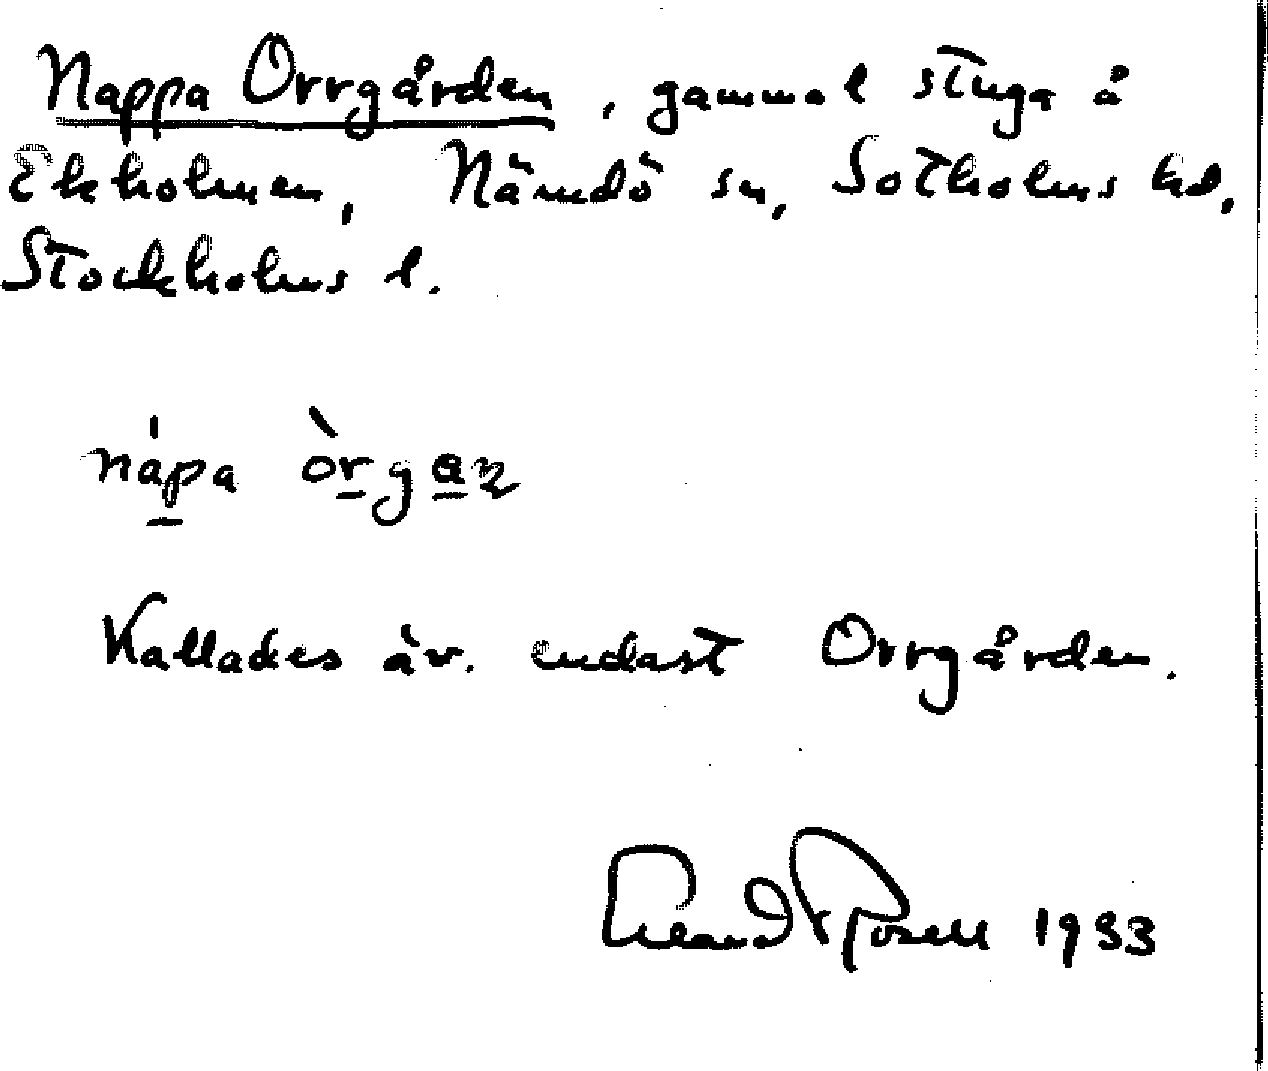 Nappa Orrgården, gammal stuga å
Ekholmen, Nämdö sn, Sotholms hd,
Stockholms l.
nápa òrgaɳ
Kallades äv. endast Orrgården.
Erland Rosell 1933